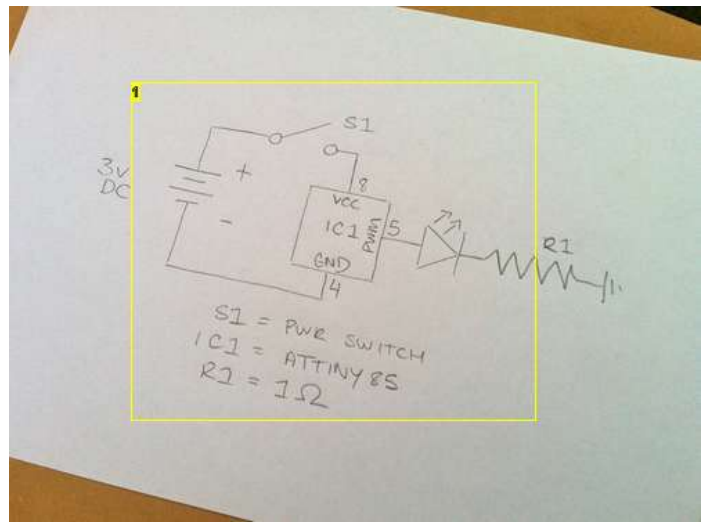 S1
3V
DC
+
-
8
VCC
IC1
PWM
5
GND
4
R1
S1 = PWR SWITCH
IC1 = ATTINY85
R1 = 1Ω
1